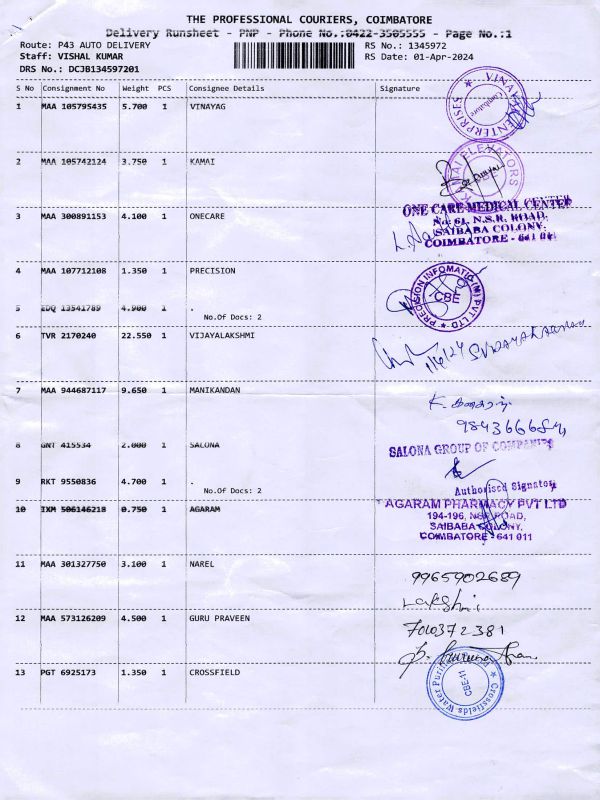 THE PROFESSIONAL COURIERS, COIMBATORE
Delivery Runsheet - PNP - Phone No.:0422-3505555 - Page No.:1
Route: P43 AUTO DELIVERY RS No.: 1345972
Staff: VISHAL KUMAR RS Date: 01-Apr-2024
DRS No.: DCJB134597201
S No Consignment No Weight PCS Consignee Details Signature
1 MAA 105795435 5.700 1 VINAYAG
VINAYAG ENTERPRISES
Coimbatore
2 MAA 105742124 3.750 1 KAMAI
MAI ELEVATORS
CBE
3 MAA 300891153 4.100 1 ONECARE
ONE CARE MEDICAL CENTER
No: 61, N.S.R. ROAD,
SAIBABA COLONY,
COIMBATORE - 641 011
4 MAA 107712108 1.350 1 PRECISION
PRECISION INFOMATIC (M) PVT LTD
CBE
5 EDQ 13541789 4.900 1 .
No.Of Docs: 2
6 TVR 2170240 22.550 1 VIJAYALAKSHMI
7 MAA 944687117 9.650 1 MANIKANDAN
8 GNT 415534 2.000 1 SALONA
SALONA GROUP OF COMPANIES
9 RKT 9550836 4.700 1 .
No.Of Docs: 2
Authorised Signatory
10 IXM 506146218 0.750 1 AGARAM
AGARAM PHARMACY PVT LTD
194-196, NSR ROAD,
SAIBABA COLONY,
COIMBATORE - 641 011
11 MAA 301327750 3.100 1 NAREL
9965902689
Lakshmi
12 MAA 573126209 4.500 1 GURU PRAVEEN
13 PGT 6925173 1.350 1 CROSSFIELD
Crossfields Water Purifi
CBE-11